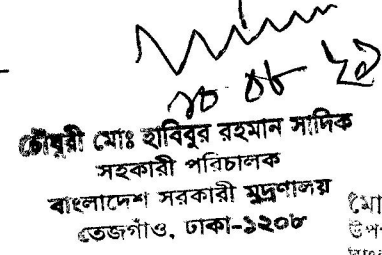 চৌধুরী মোঃ হাবিবুর রহমান সাদিক
সহকারী পরিচালক
বাংলাদেশ সরকারী মুদ্রণালয়
তেজগাঁও, ঢাকা-১২০৮
মো
উপ